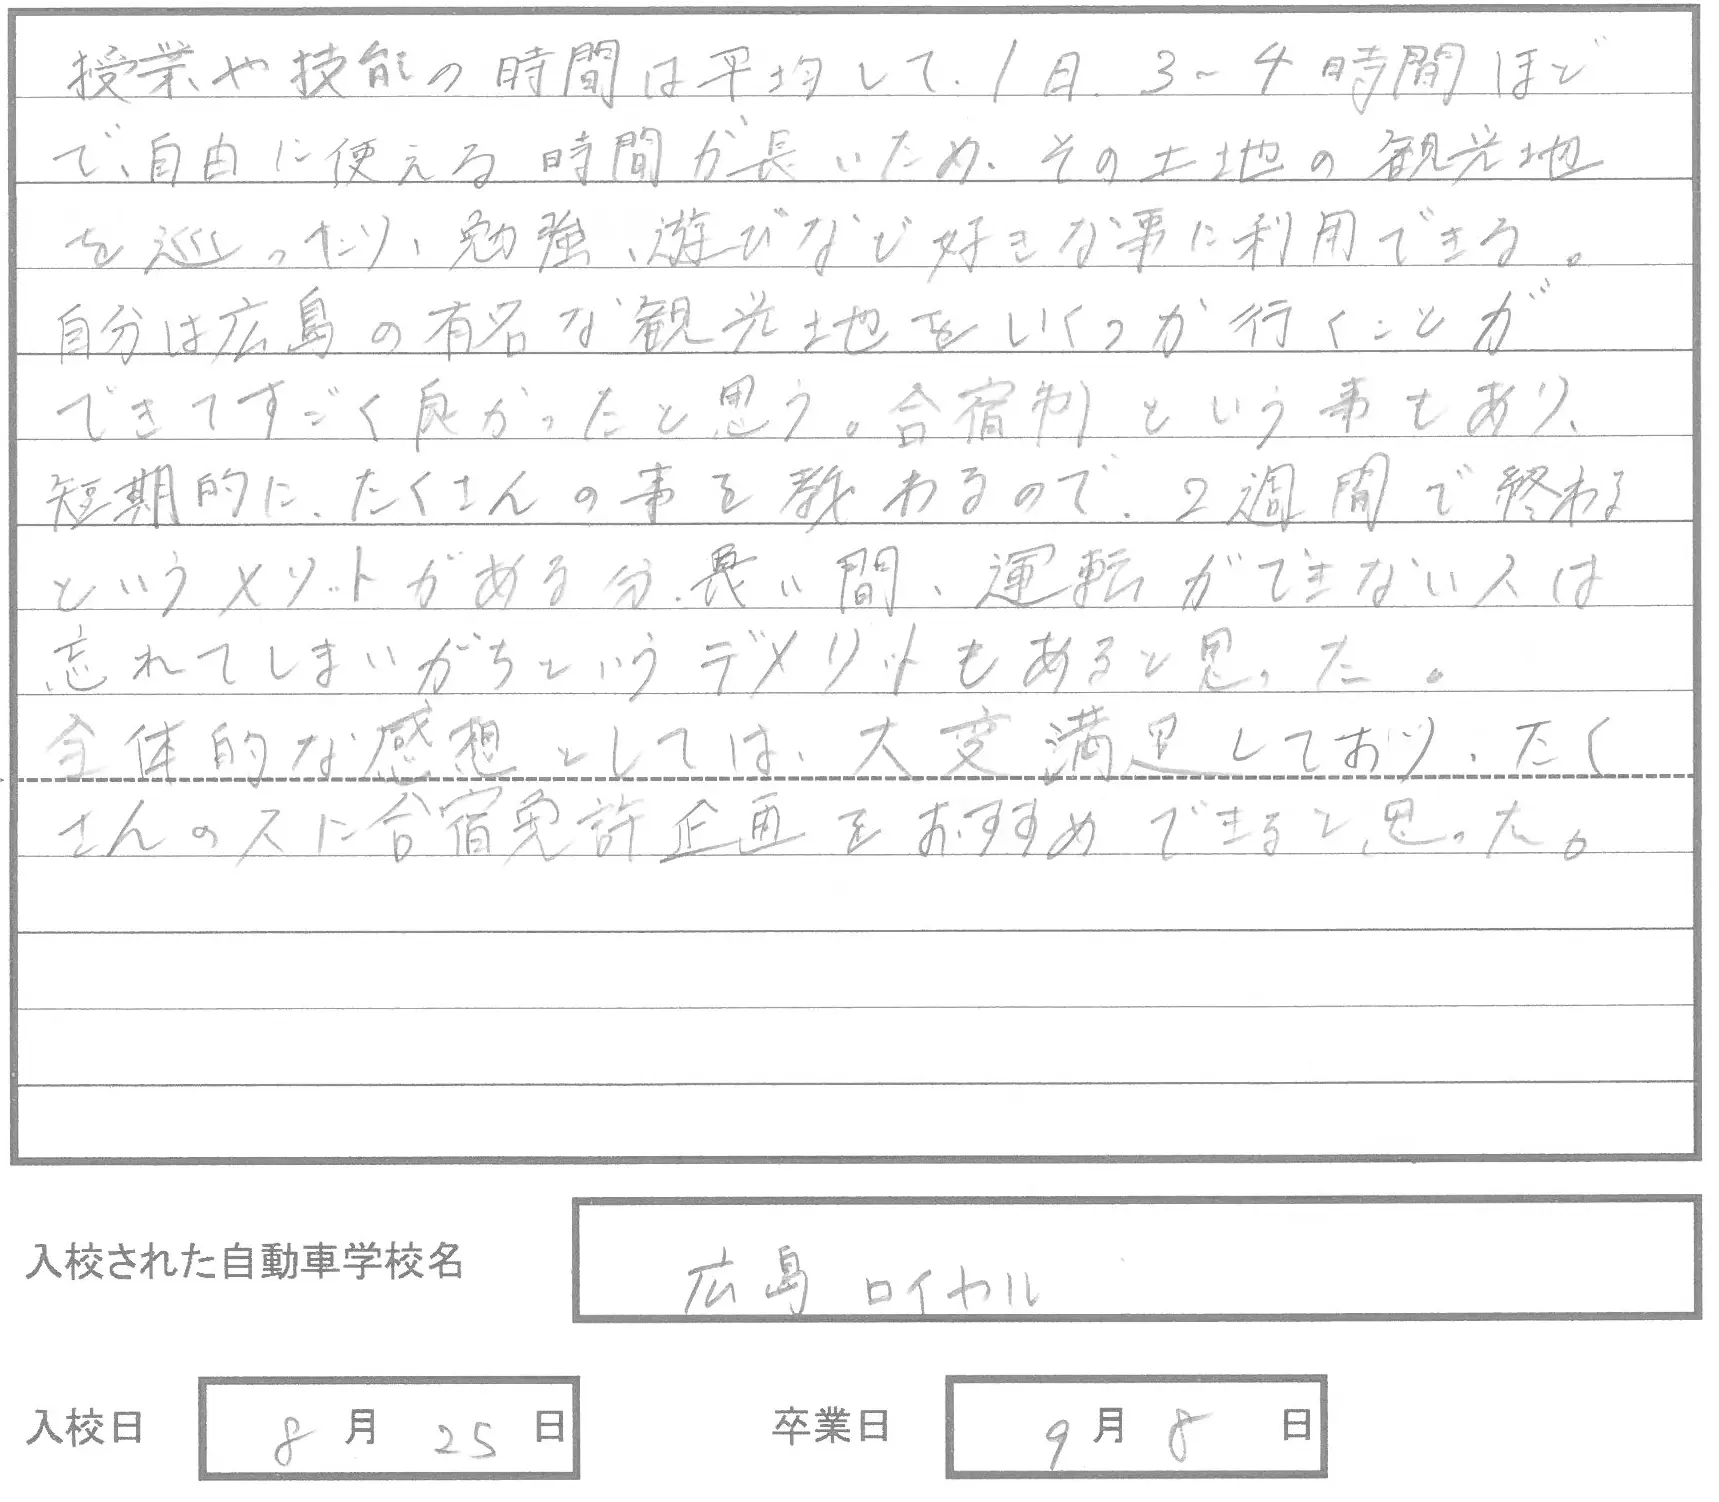 授業や技能の時間は平均して、1日、3~4時間ほど
で、自由に使える時間が長いため、その土地の観光地
を巡ったり、勉強、遊びなど好きな事に利用できる。
自分は広島の有名な観光地をいくつか行くことが
できてすごく良かったと思う。合宿制という事もあり、
短期的に、たくさんの事を教わるので、2週間で終わる
というメリットがある分、長い間、運転ができない人は
忘れてしまいがちというデメリットもあると思った。
全体的な感想としては、大変満足しており、たく
さんの人に合宿免許企画をおすすめできると思った。
入校された自動車学校名 広島 ロイヤル
入校日 8月25日 卒業日 9月8日